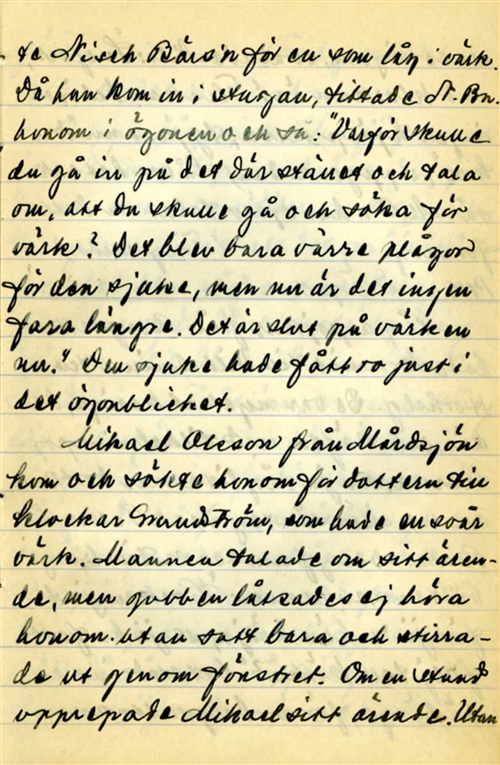 te Nisch Bårs'n för en som låg i värk.
Då han kom in i stugan, tittade N. Bn.
honom i ögonen och sa: "Varför skulle
du gå in på det där stället och tala
om, att du skulle gå och söka för
värk? Det blev bara värre plågor
för den sjuke, men nu är det ingen
fara längre. Det är slut på värken
nu." Den sjuke hade fått ro just i
det ögonblicket.
Mikael Olsson från Mårdsjön
kom och sökte honom för dottern till
klockar Grundström, som hade en svår
värk. Mannen talade om sitt ären-
de, men gubben låtsades ej höra
honom. utan satt bara och stirra-
de ut genom fönstret. Om en stund
upprepade Mikael sitt ärende. Utan